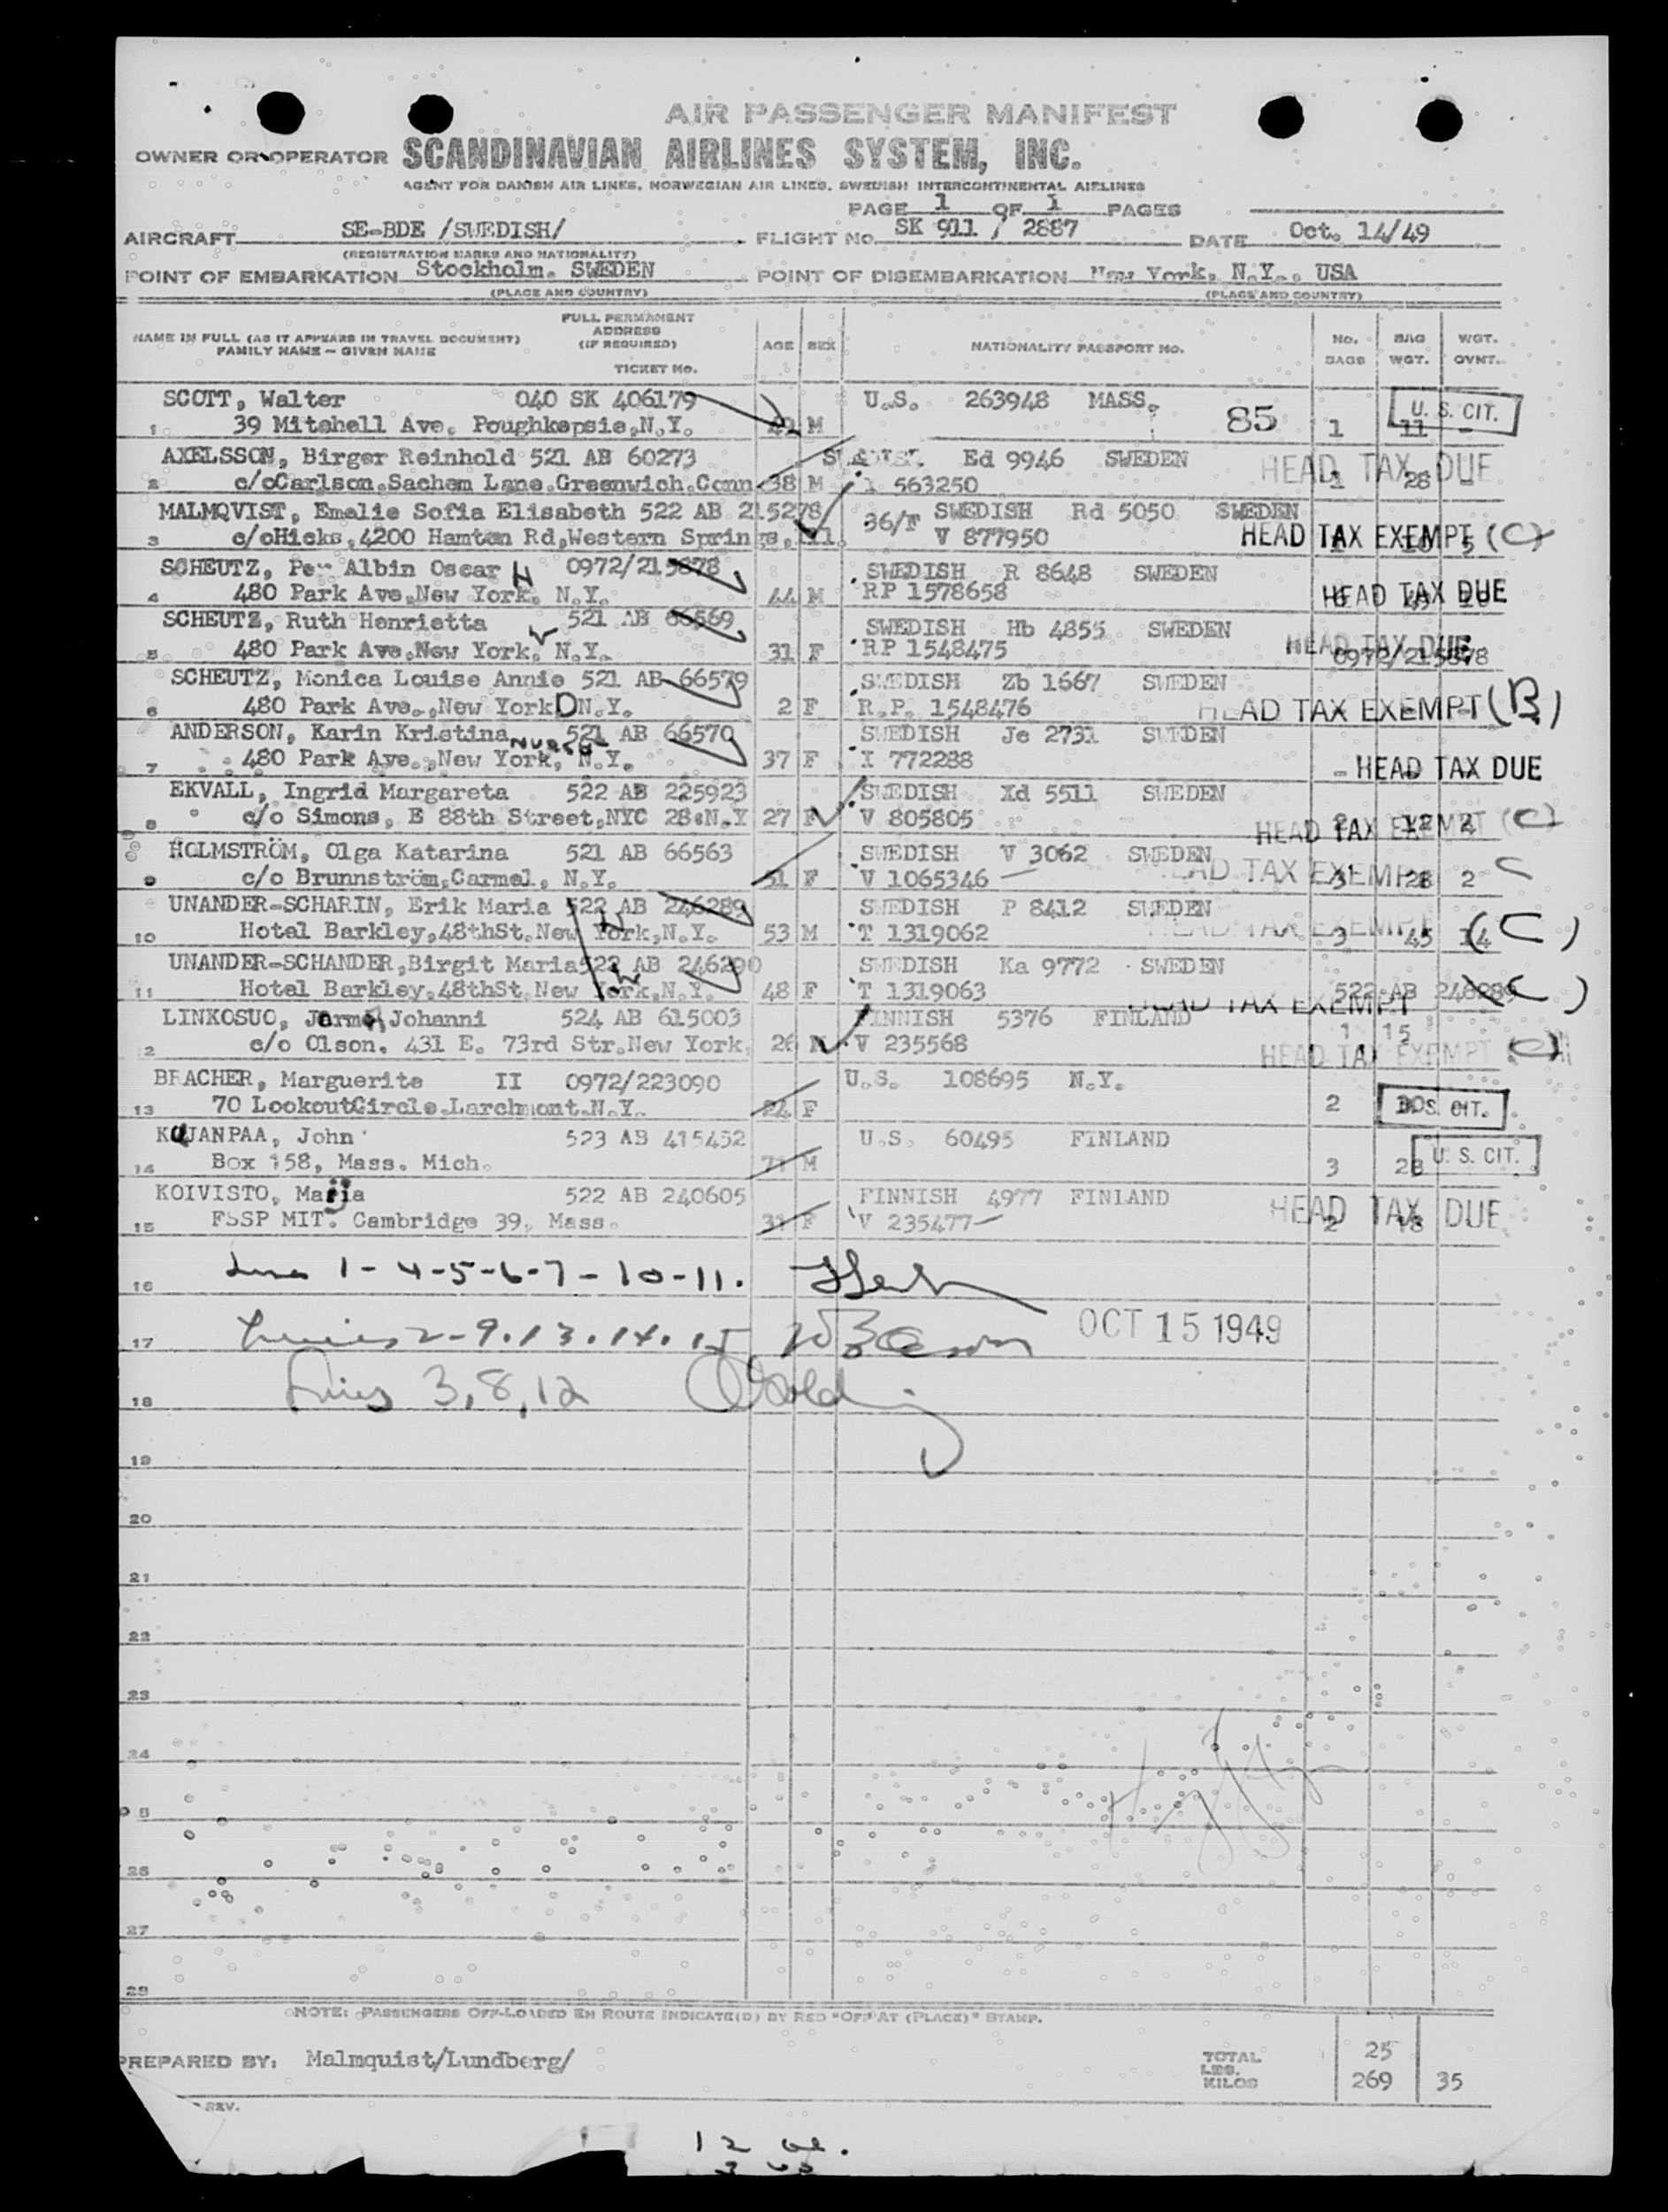 AIR PASSENGER MANIFEST
OWNER OR OPERATOR SCANDINAVIAN AIRLINES SYSTEM, INC.
AGENT FOR DANISH AIR LINES, NORWEGIAN AIR LINES, SWEDISH INTERCONTINENTAL AIRLINES
PAGE 1 OF 1 PAGES
AIRCRAFT SE-BDE /SWEDISH/ FLIGHT NO. SK 911 / 2887 DATE Oct. 14/49
(REGISTRATION MARKS AND NATIONALITY)
POINT OF EMBARKATION Stockholm. SWEDEN POINT OF DISEMBARKATION New York, N.Y., USA
(PLACE AND COUNTRY) (PLACE AND COUNTRY)
NAME IN FULL (AS IT APPEARS IN TRAVEL DOCUMENT) FAMILY NAME - GIVEN NAME FULL PERMANENT ADDRESS (IF REQUIRED) TICKET NO. AGE SEX NATIONALITY PASSPORT NO. NO. BAGS BAG WGT. WGT. OVWT.
SCOTT, Walter 040 SK 406179 U.S. 263948 MASS. 85 U. S. CIT.
1 39 Mitchell Ave. Poughkepsie,N.Y. M 1 11 -
AXELSSON, Birger Reinhold 521 AB 60273 Ed 9946 SWEDEN HEAD TAX DUE
2 c/oCarlson.Sachem Lane.Greenwich.Conn 38 M 563250 28
MALMQVIST, Emelie Sofia Elisabeth 522 AB 215278 36/F SWEDISH Rd 5050 SWEDEN
3 c/oHicks,4200 Hamton Rd,Western Springs, Ill. V 877950 HEAD TAX EXEMPT (C)
SCHEUTZ, Per Albin Oscar H 0972/215878 SWEDISH R 8648 SWEDEN
4 480 Park Ave,New York, N.Y. 44 M RP 1578658 HEAD TAX DUE
SCHEUTZ, Ruth Henrietta 521 AB 66569 SWEDISH Hb 4855 SWEDEN
5 480 Park Ave,New York, N.Y. 31 F RP 1548475 HEAD TAX DUE 0972/215878
SCHEUTZ, Monica Louise Annie 521 AB 66579 SWEDISH Zb 1667 SWEDEN
6 480 Park Ave.,New York D N.Y. 2 F R.P. 1548476 HEAD TAX EXEMPT (B)
ANDERSON, Karin Kristina 521 AB 66570 SWEDISH Je 2731 SWEDEN
7 480 Park Ave.,New York, N.Y. 37 F X 772288 - HEAD TAX DUE
EKVALL, Ingrid Margareta 522 AB 225923 SWEDISH Xd 5511 SWEDEN
8 c/o Simons, E 88th Street,NYC 28.N.Y 27 F V 805805 HEAD TAX EXEMPT (C) 12 2
HOLMSTRÖM, Olga Katarina 521 AB 66563 SWEDISH V 3062 SWEDEN
9 c/o Brunnström,Carmel, N.Y. 51 F V 1065346 HEAD TAX EXEMPT 3 28 2 C
UNANDER-SCHARIN, Erik Maria 522 AB 246289 SWEDISH P 8412 SWEDEN
10 Hotel Barkley,48thSt.New York,N.Y. 53 M T 1319062 HEAD TAX EXEMPT 3 45 14 (C)
UNANDER-SCHANDER,Birgit Maria522 AB 246290 SWEDISH Ka 9772 SWEDEN
11 Hotel Barkley.48thSt.New York,N.Y. 48 F T 1319063 HEAD TAX EXEMPT 522 AB 246289 (C)
LINKOSUO, Jarmo Johanni 524 AB 615003 FINNISH 5376 FINLAND
2 c/o Olson. 431 E. 73rd Str.New York, 26 V 235568 1 15 HEAD TAX EXEMPT (C)
BRACHER, Marguerite II 0972/223090 U.S. 108695 N.Y.
13 70 LookoutCircle.Larchmont.N.Y. 24 F 2 U. S. CIT.
KUJANPAA, John 523 AB 415452 U.S. 60495 FINLAND
14 Box 158, Mass. Mich. 71 M 3 28 U. S. CIT.
KOIVISTO, Marja 522 AB 240605 FINNISH 4977 FINLAND
15 FSSP MIT. Cambridge 39, Mass. 31 F V 235477 HEAD TAX DUE 2 18
16 Lines 1-4-5-6-7-10-11.
17 Lines 2-9.13.14.15 OCT 15 1949
18 Lines 3,8,12
19
20
21
22
23
24
25
26
27
28
NOTE: PASSENGERS OFF-LOADED EN ROUTE INDICATE(D) BY RED "OFF AT (PLACE)" STAMP.
PREPARED BY: Malmquist/Lundberg/ TOTAL 25
LBS.
KILOS 269 35
REV.
12